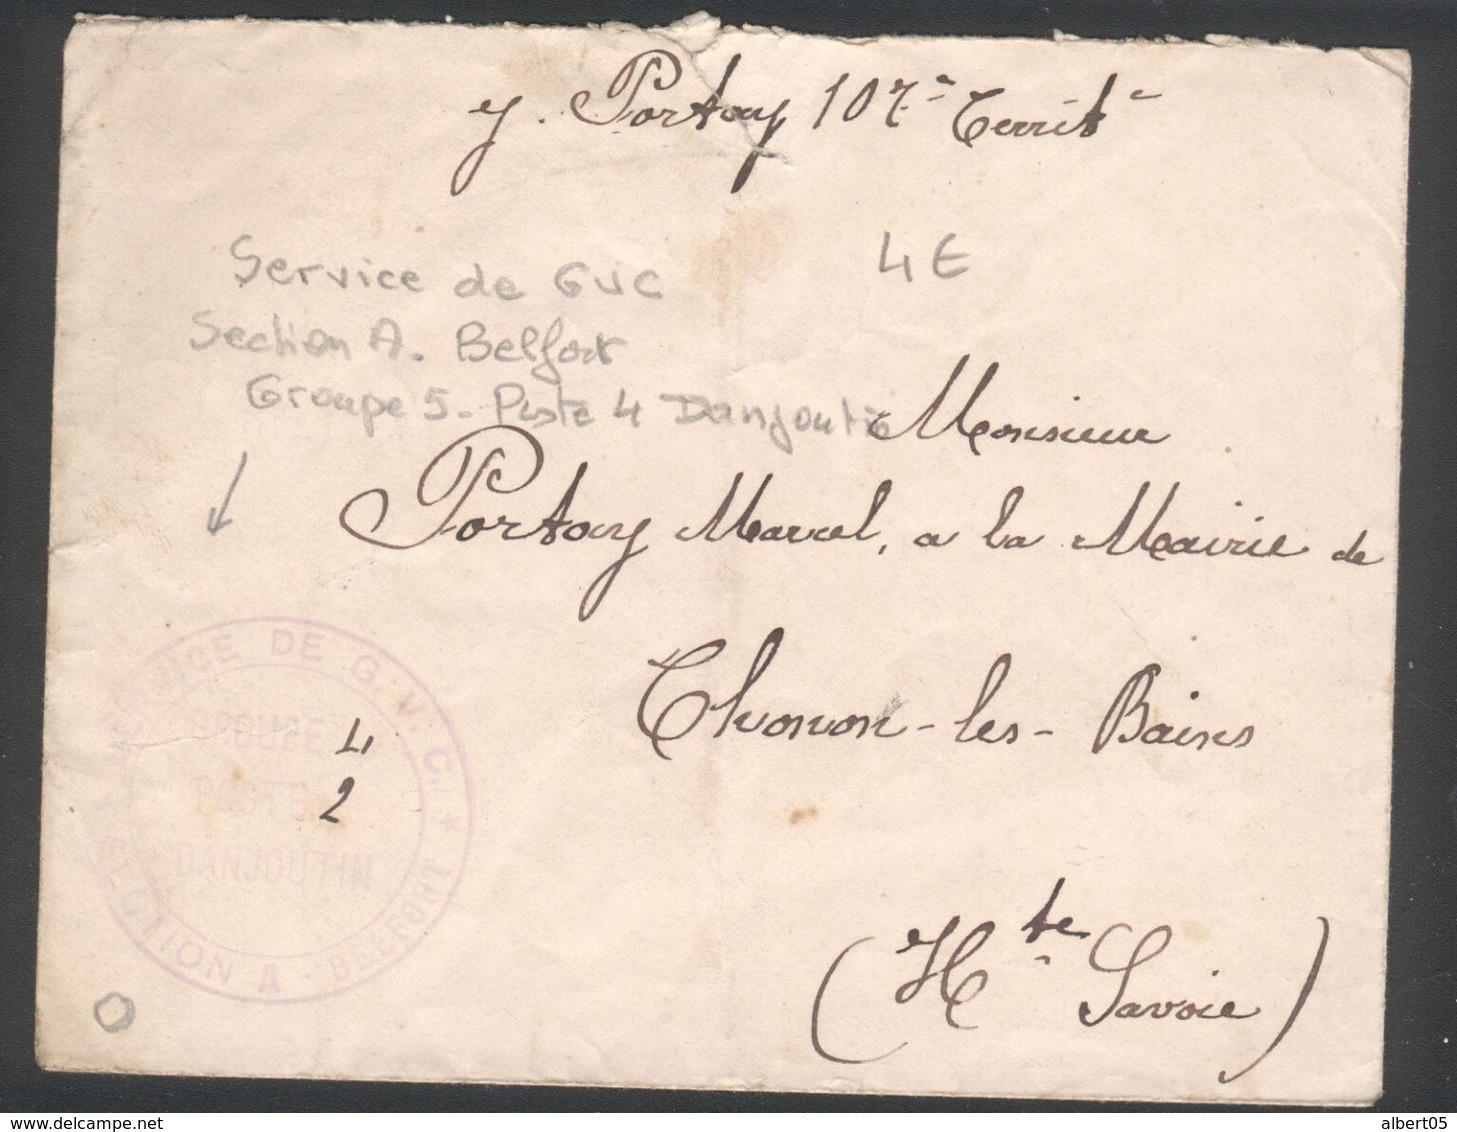 J. Portay 107e Territ
4 E
Service de GVC
Section A. Belfort
Groupe 5 - Poste 4 Danjoutin
Monsieur
Portay Marcel, a la Mairie de
Thonon-les-Bains
(Hte Savoie)
SERVICE DE G.V.C. *
GROUPE 4
POSTE 2
DANJOUTIN
SECTION A - BELFORT
albert05